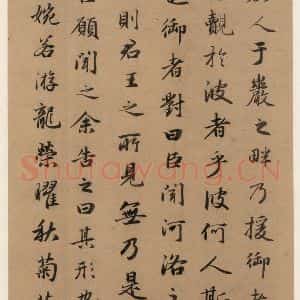 人于巖之畔乃援御者
觀於彼者乎彼何人斯
御者對曰臣聞河洛之
則君王之所見無乃是
願聞之余告之曰其形也
婉若游龍榮曜秋菊
Shufawang.CN